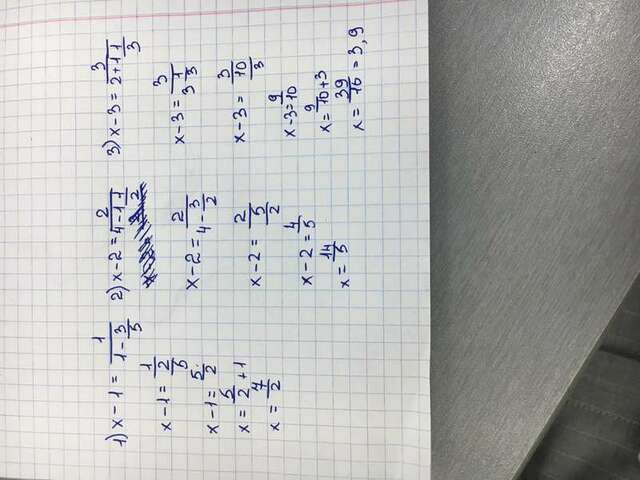 1) x - 1 = 1/(1 - 3/5)
x - 1 = 1/(2/5)
x - 1 = 5/2
x = 5/2 + 1
x = 7/2
2) x - 2 = 2/(4 - 1 1/2)
x - 2 = 2/(4 - 3/2)
x - 2 = 2/(5/2)
x - 2 = 4/5
x = 14/5
3) x - 3 = 3/(2 + 1 1/3)
x - 3 = 3/(3 1/3)
x - 3 = 3/(10/3)
x - 3 = 9/10
x = 9/10 + 3
x = 39/10 = 3,9